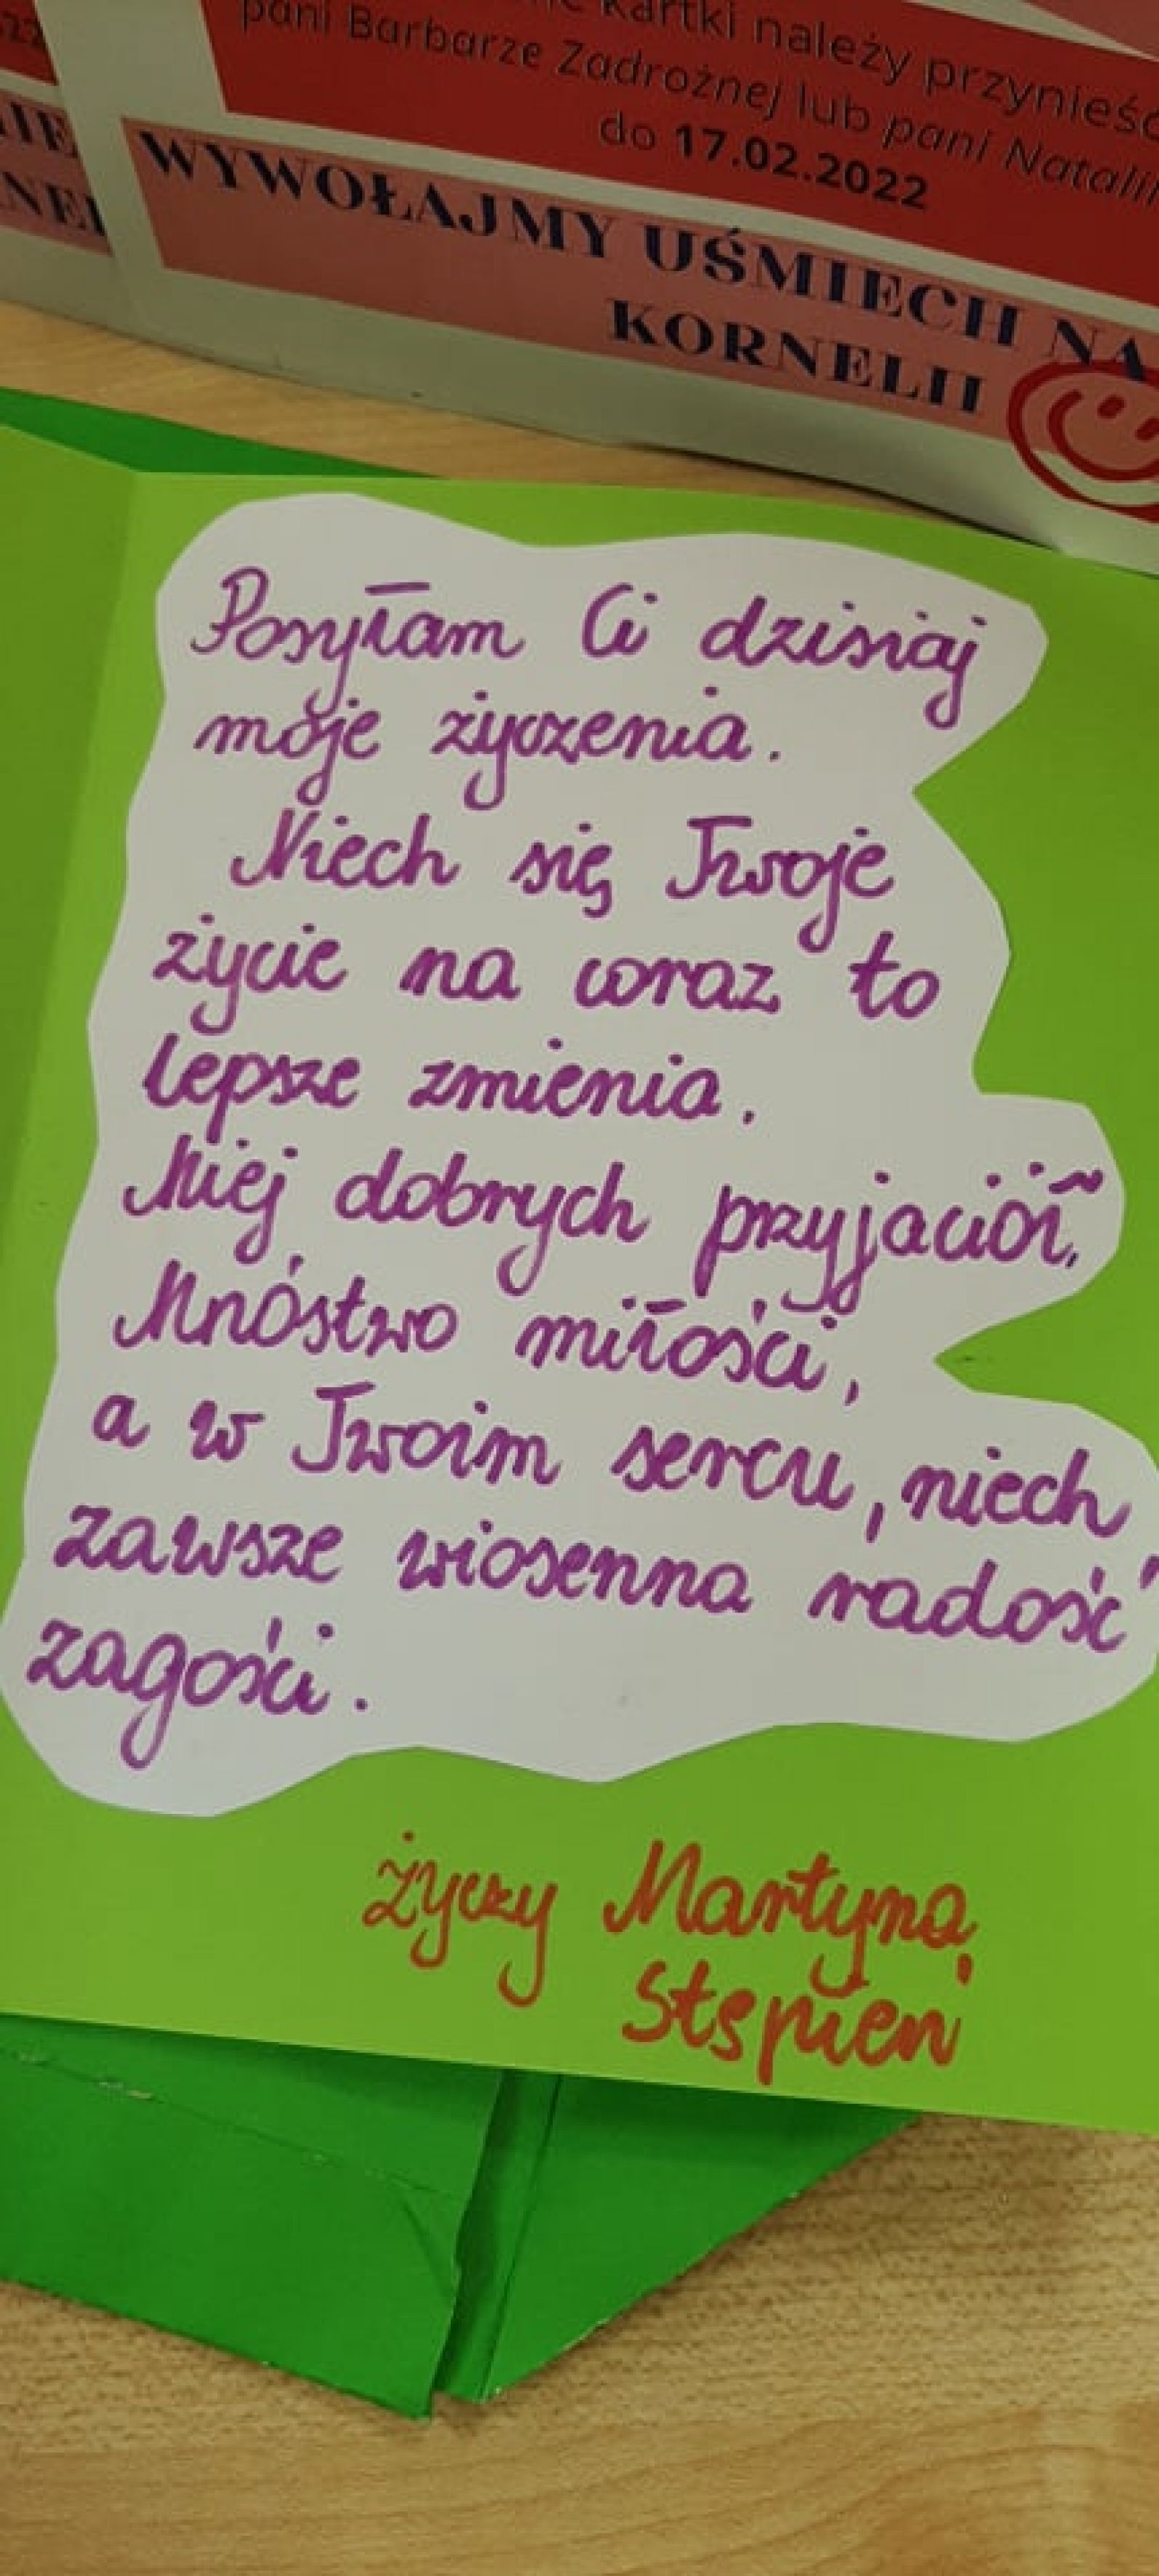 kartki należy przynieść
pani Barbarze Zadrożnej lub pani Natalii
do 17.02.2022
WYWOŁAJMY UŚMIECH NA
KORNELII
Posyłam Ci dzisiaj
moje życzenia.
Niech się Twoje
życie na coraz to
lepsze zmienia.
Miej dobrych przyjaciół,
Mnóstwo miłości,
a w Twoim sercu, niech
zawsze wiosenna radość
zagości.
życzy Martyna
Stępień